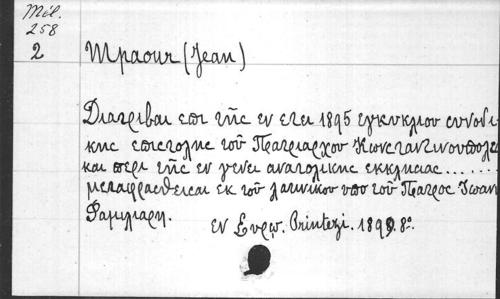 Mél.
258
2
Μπαουr (Jean)
Διατριβαι επι τῆς εν ετει 1895 εγκυκλιου συνοδι
κης επιστολης τοῦ Πατριαρχου Κωνσταντινουπολε
και περι τῆς εν γενει ανατολικης εκκλησιας......
μεταφρασθεισαι εκ τοῦ λατινικου υπο τοῦ Πατρος Ιωαν
Φαμιλιαρη.
εν Συρῳ. Printezi. 1899. 8º.